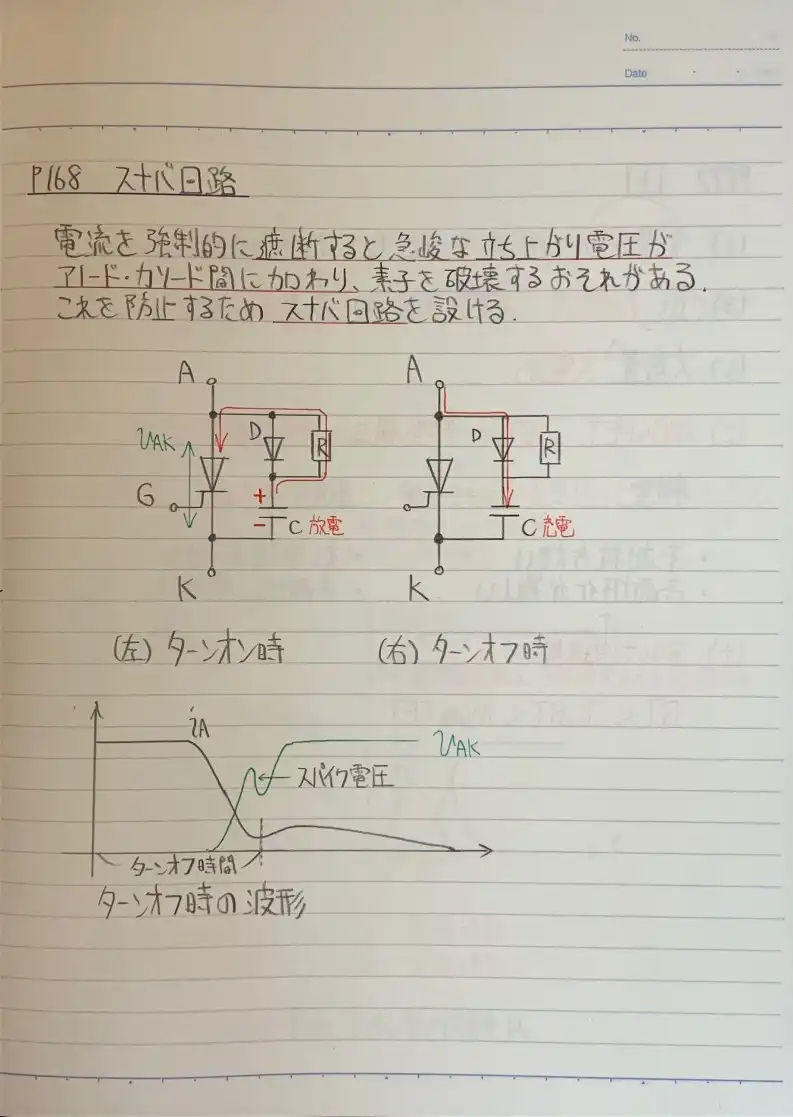 No.
Date
P168 スナバ回路
電流を強制的に遮断すると急峻な立ち上がり電圧が
アノード・カソード間に加わり、素子を破壊するおそれがある.
これを防止するためスナバ回路を設ける.
A
A
D
R
D
R
VAK
G
+
-
C 放電
C 充電
K
K
(左) ターンオン時
(右) ターンオフ時
iA
VAK
スパイク電圧
ターンオフ時間
ターンオフ時の波形